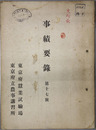 事績要錄
第十七號
東京府農業試驗場
東京府立農事講習所